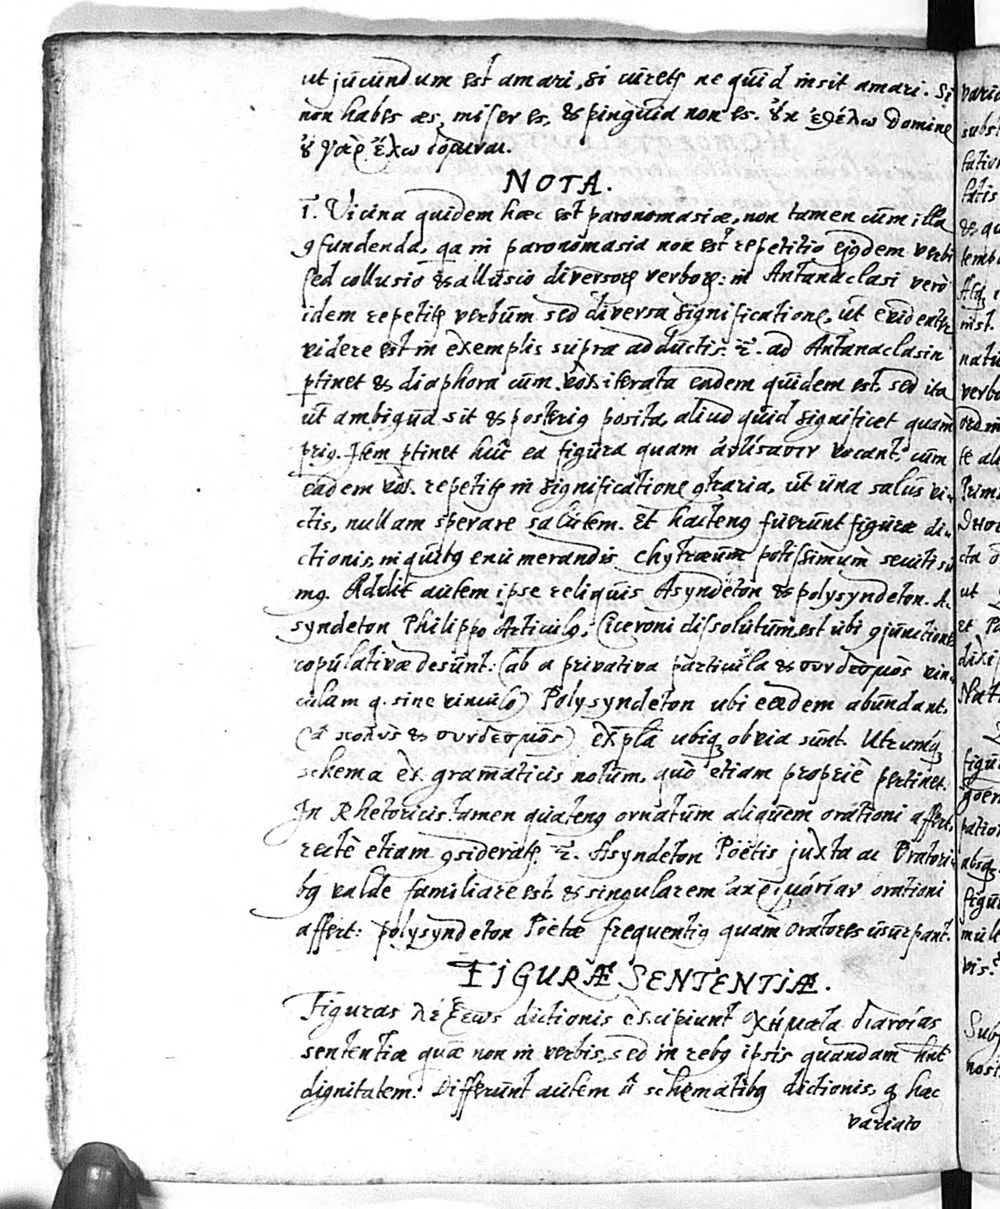 ut jucundum est amari, si curetʒ ne quid insit amari. Si
non habes æs, miser es, & pinguia non es. ȣ̓κ ἐθέλω Domine
ȣ̓ γὰρ ἔλω
NOTA.
1. Vicina quidem hæc est paronomasiæ, non tamen cum illa
ꝯfundenda, qa in paronomasia non est repetitio ejꝰdem verbi
sed collusio & allusio diversorꝝ verborꝝ: in Antanaclasi verò
idem repetitʒ verbum sed diversa significatione, ut evidenter
videre est in exemplis supra adductis. 2. ad Antanaclasin
ꝑtinet & diaphora cum vox iterata eadem quidem est, sed ita
ut ambigua sit & posteriꝰ posita, aliud quid significet quàm
priꝰ. Item ꝑtinet huc ea figura quam vocant, cum
eadem vox repetitʒ in significatione ꝯtraria, ut una salus vi-
ctis, nullam sperare salutem. Et hactenꝰ fuerunt figuræ di-
ctionis, in quibꝰ enumerandis Chytræum potissimùm secuti su
mꝰ. Addit autem ipse reliquis Asyndeton & polysyndeton. A-
syndeton Philippo Articulꝰ, Ciceroni dissolutum, est ubi ꝯjunctiones
copulativæ desunt: (ab α privativa particula & συνδεσμὸς vin-
culum q. sine vinculo) Polysyndeton ubi eædem abundant,
(à πολὺς & συνδεσμὸς) exp̄la ubiqꝫ obvia sunt. Utrumqꝫ
schema ex gram̄aticis notum, quò etiam propriè pertinet.
In Rhetoricis tamen quatenꝰ ornatum aliquem orationi affert,
rectè etiam ꝯsideratʒ. 2. Asyndeton Poëtis juxta ac Oratori-
bꝰ valde familiare est, & singularem orationi
affert: polysyndeton Poëtæ frequentiꝰ quàm Oratores usurpant.
FIGURÆ SENTENTIÆ.
Figuras λέξεως dictionis excipiunt σχήματα διανοίας
sententiæ quæ non in verbis, sed in rebꝰ ipsis quandam hn̄t
dignitatem. Differunt autem à schematibꝰ dictionis, qꝫ hæc
variato